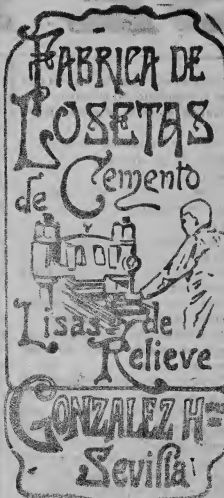 FABRICA DE
LOSETAS
de Cemento
Lisas y de
Relieve
GONZALEZ Hnos
Sevilla